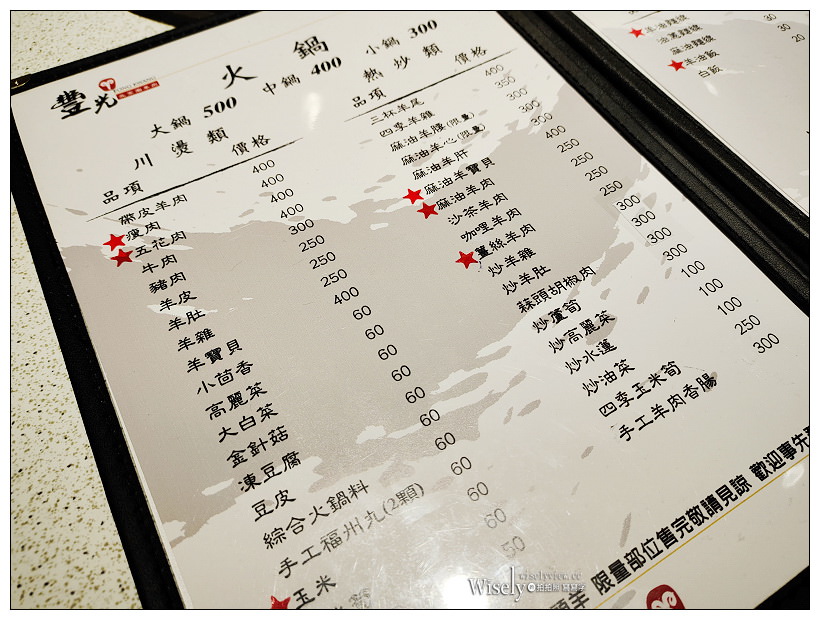 豐光
火鍋
大鍋 500 中鍋 400 小鍋 300
川燙類
品項 價格
帶皮羊肉 400
瘦肉 400
五花肉 400
牛肉 400
豬肉 300
羊皮 250
羊肚 250
羊雜 250
羊寶貝 400
小茴香 60
高麗菜 60
大白菜 60
金針菇 60
凍豆腐 60
豆皮 60
綜合火鍋料 60
手工福州丸(2顆) 60
玉米 60
60
50
熱炒類
品項 價格
三杯羊尾 400
四季羊雜 350
麻油羊腰(限量) 300
麻油羊心(限量) 300
麻油羊肝 300
麻油羊寶貝 400
麻油羊肉 250
沙茶羊肉 250
咖哩羊肉 250
薑絲羊肉 250
炒羊雜 300
炒羊肚 300
蒜頭胡椒肉 300
炒蘆筍 300
炒高麗菜 100
炒水蓮 100
炒油菜 100
四季玉米筍 250
手工羊肉香腸 300
限量部位售完敬請見諒 歡迎事先
羊油麵線
油蔥麵線 30
麻油麵線 30
羊油飯 20
白飯
wiselyview.cc
Wisely